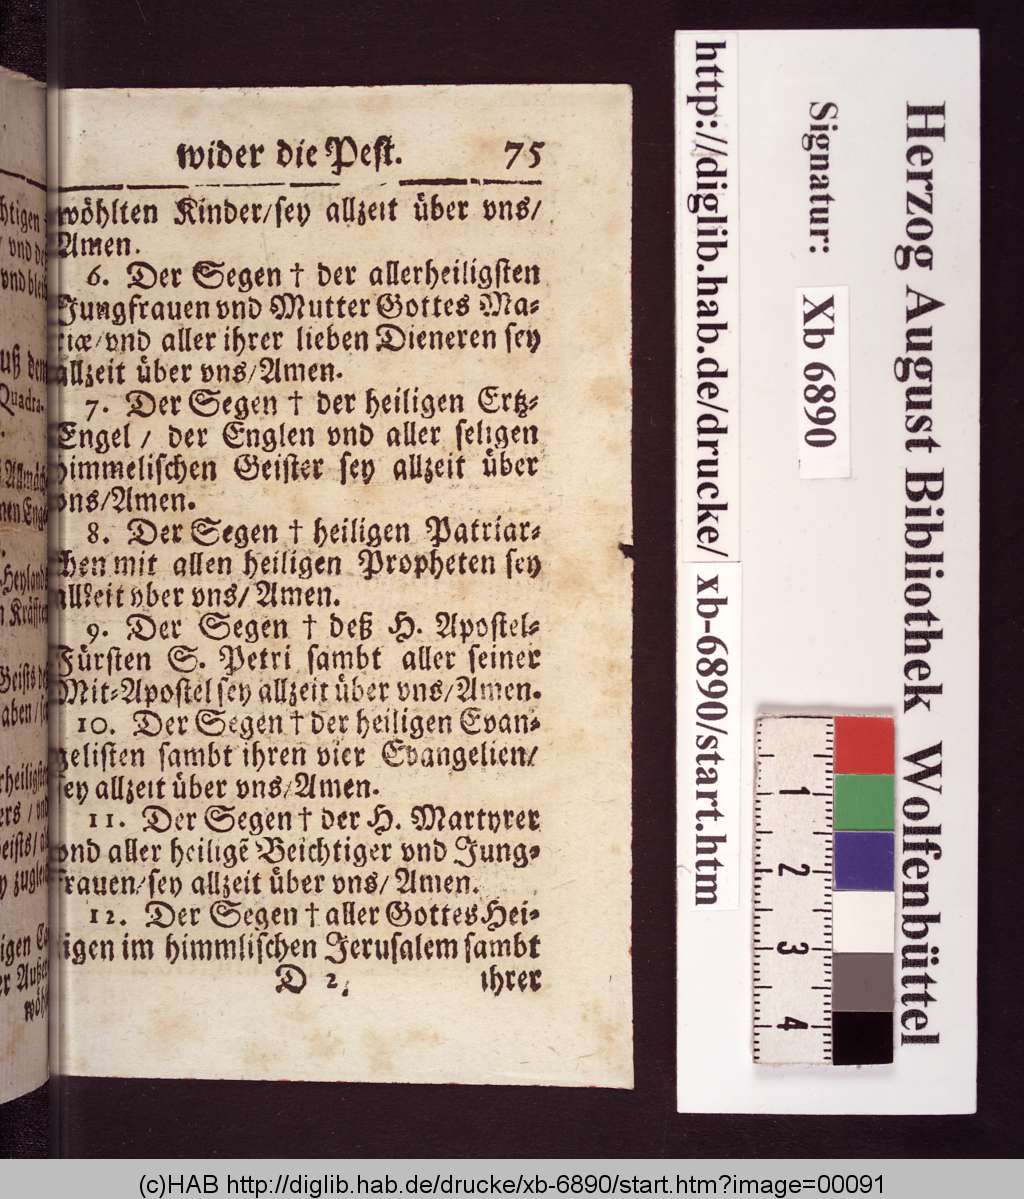 wider die Pest. 75
wöhlten Kinder/sey allzeit über vns/
Amen.
6. Der Segen † der allerheiligsten
Jungfrauen vnd Mutter Gottes Ma⸗
riæ/vnd aller ihrer lieben Dieneren sey
allzeit über vns/Amen.
7. Der Segen † der heiligen Ertz⸗
Engel / der Englen vnd aller seligen
himmelischen Geister sey allzeit über
vns/Amen.
8. Der Segen † heiligen Patriar⸗
chen mit allen heiligen Propheten sey
allzeit vber vns/ Amen.
9. Der Segen † deß H. Apostel⸗
Fürsten S. Petri sambt aller seiner
Mit⸗Apostel sey allzeit über vns/Amen.
10. Der Segen † der heiligen Evan⸗
gelisten sambt ihren vier Evangelien/
sey allzeit über vns/Amen.
11. Der Segen † der H. Martyrer
vnd aller heiligē Beichtiger vnd Jung⸗
frauen/sey allzeit über vns/ Amen.
12. Der Segen † aller Gottes Hei⸗
ligen im himmlischen Jerusalem sambt
D 2, ihrer
Herzog August Bibliothek Wolfenbüttel
Signatur: Xb 6890
http://diglib.hab.de/drucke/ xb-6890/start.htm
1
2
3
4
(c)HAB http://diglib.hab.de/drucke/xb-6890/start.htm?image=00091